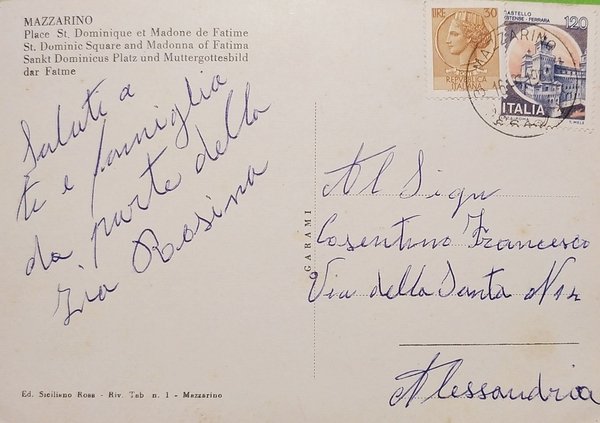 MAZZARINO
Place St. Dominique et Madone de Fatime
St. Dominic Square and Madonna of Fatima
Sankt Dominicus Platz und Muttergottesbild
dar Fatme
Saluti a
te e famiglia
da parte della
Zia Rosina
Ed. Siciliano Rosa - Riv. Tab n. 1 - Mazzarino
GARAMI
LIRE 30
REPUBBLICA
ITALIANA
CASTELLO
ESTENSE - FERRARA
120
ITALIA
MAZZARINO
Al Sign
Cosentino Francesco
Via della Santa N 12
Alessandria